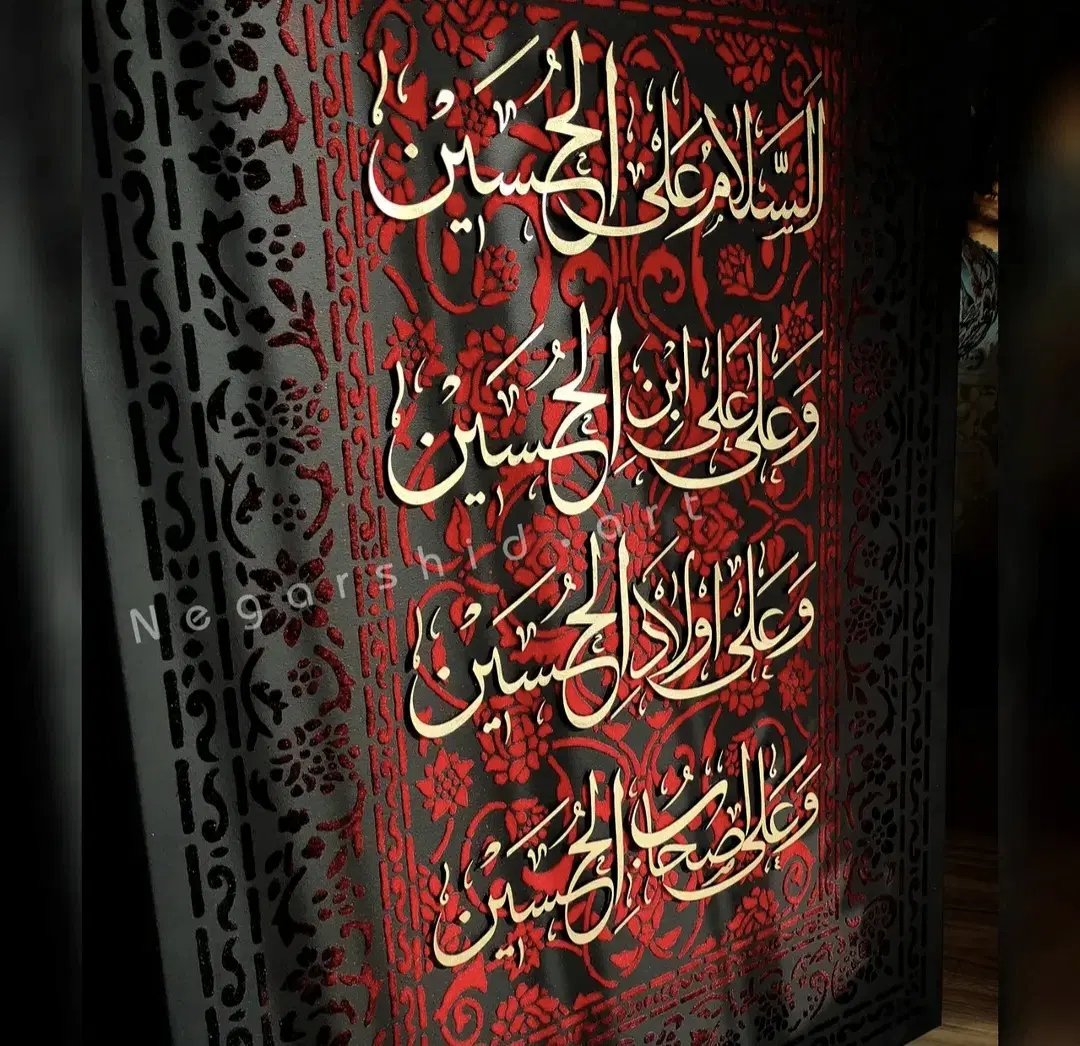 اَلسَّلامُ عَلَى الحُسَيْن
وَعَلى عَلىِ ابْنِ الحُسَيْن
وَعَلى اَولادِ الحُسَيْن
وَعَلى اَصحابِ الحُسَيْن
Negarshid.art